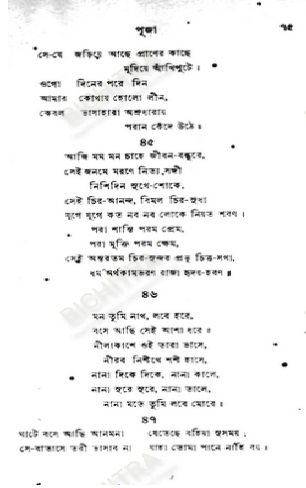 পূজা ৭৫
সে-যে জড়িয়ে আছে প্রাণের কাছে
মুদিয়ে আঁখিপুটে।
ওগো দিনের পরে দিন
আমার কোথায় হোলো লীন,
কেবল ভাষাহারা অশ্রুধারায়
পরান কেঁদে উঠে॥
৪৫
আজি মম মন চাহে জীবন-বন্ধুরে,
সেই জনমে মরণে নিত্য-সঙ্গী
নিশিদিন সুখে-শোকে,
সেই চির-আনন্দ, বিমল চির-সুধা
যুগে যুগে কত নব নব লোকে নিয়ত শরণ।
পরা শান্তি পরম প্রেম,
পরা মুক্তি পরম ক্ষেম,
সেই অন্তরতম চির-সুন্দর প্রভু চিত্ত-সখা,
ধর্ম অর্থকামভরণ রাজা হৃদয়-হরণ॥
৪৬
মন তুমি নাথ, লবে হরে,
বসে আছি সেই আশা ধরে॥
নীলাকাশে ওই তারা ভাসে,
নীরব নিশীথে শশী হাসে,
নানা দিকে দিকে, নানা কালে,
নানা সুরে সুরে, নানা তালে,
নানা মতে তুমি লবে মোরে॥
৪৭
ঘাটে বসে আছি আনমনা যেতেছে বহিয়া সুসময়,
সে-বাতাসে তরী ভাসাব না যাহা তোমা পানে নাহি বয়।